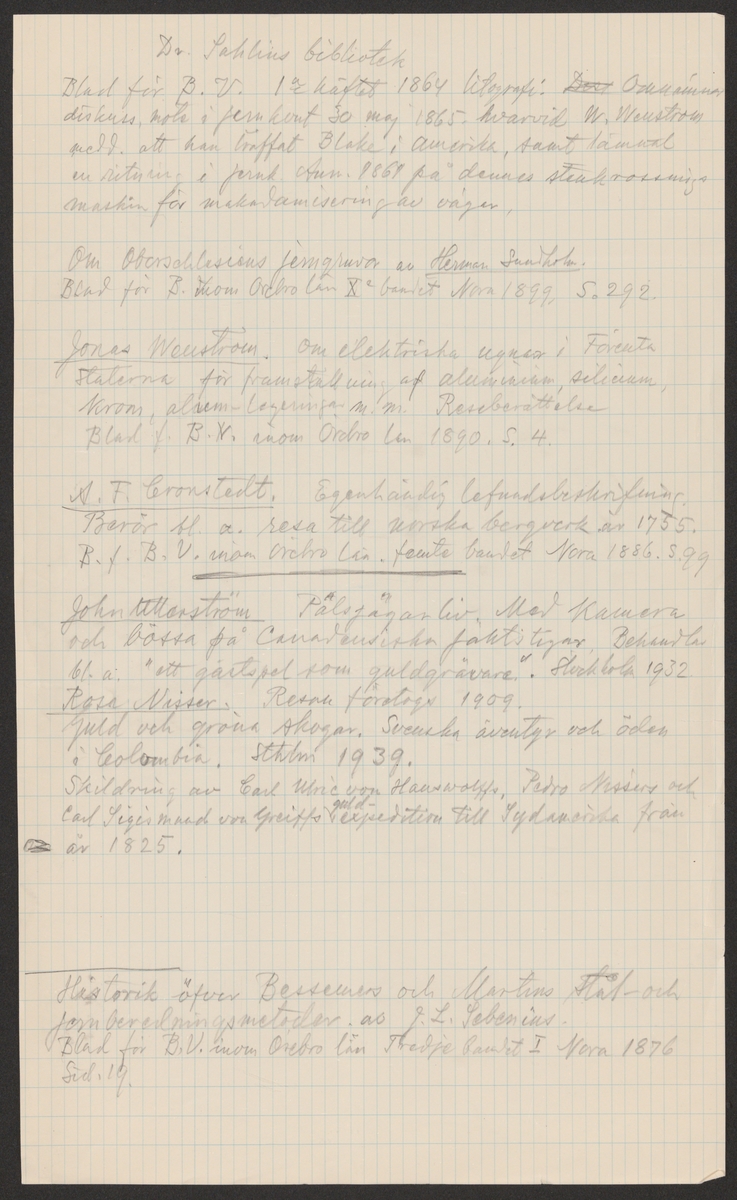 Dr. Sahlins bibliotek
Blad för B. V. 1a häftet 1864 litografi.
diskuss. möte i jernkont 30 maj 1865. hvarvid W. Wenström
medd. att han träffat Blake i Amerika, samt lämnat
en ritning i Jernk. Ann. 1861 på dennes stenkrossnings
maskin för makadamisering av vägar,
Om Oberschlesiens jerngruvor av Herman Sundholm.
Blad för B. inom Örebro län Xe bandet Nora 1899, S. 292.
Jonas Wenström. Om elektriska ugnar i Förenta
Staterna för framställning af aluminium, silicium,
Krom, alum-legeringar m.m. Reseberättelse
Blad f. B.V. inom Örebro län 1890. S. 4.
A. F. Cronstedt. Egenhändig lefnadsbeskrifning.
Berör bl. a. resa till norska bergverk år 1755.
B. f. B. V. inom Örebro län. femte bandet Nora 1886. S 99
John Pälsjägarliv. Med Kamera
och bössa på Canadensiska jaktstigar. Behandlar
bl. a. "ett gästspel som guldgrävare". Stockholm 1932
Rosa Nisser. Resan företogs 1909.
Guld och gröna skogar. Svenska äventyr och öden
i Colombia. Sthlm 1939.
Skildring av Carl Ulric von Hauswolffs, Pedro Nissers och
Carl Sigismund von Greiffs guldexpedition till Sydamerika från
år 1825.
Historik öfver Bessemers och Martins Stål- och
jernberedningsmetoder. av J. L. Sebenius.
Blad för B.V. inom Örebro län Tredje bandet I Nora 1876
Sid. 19.